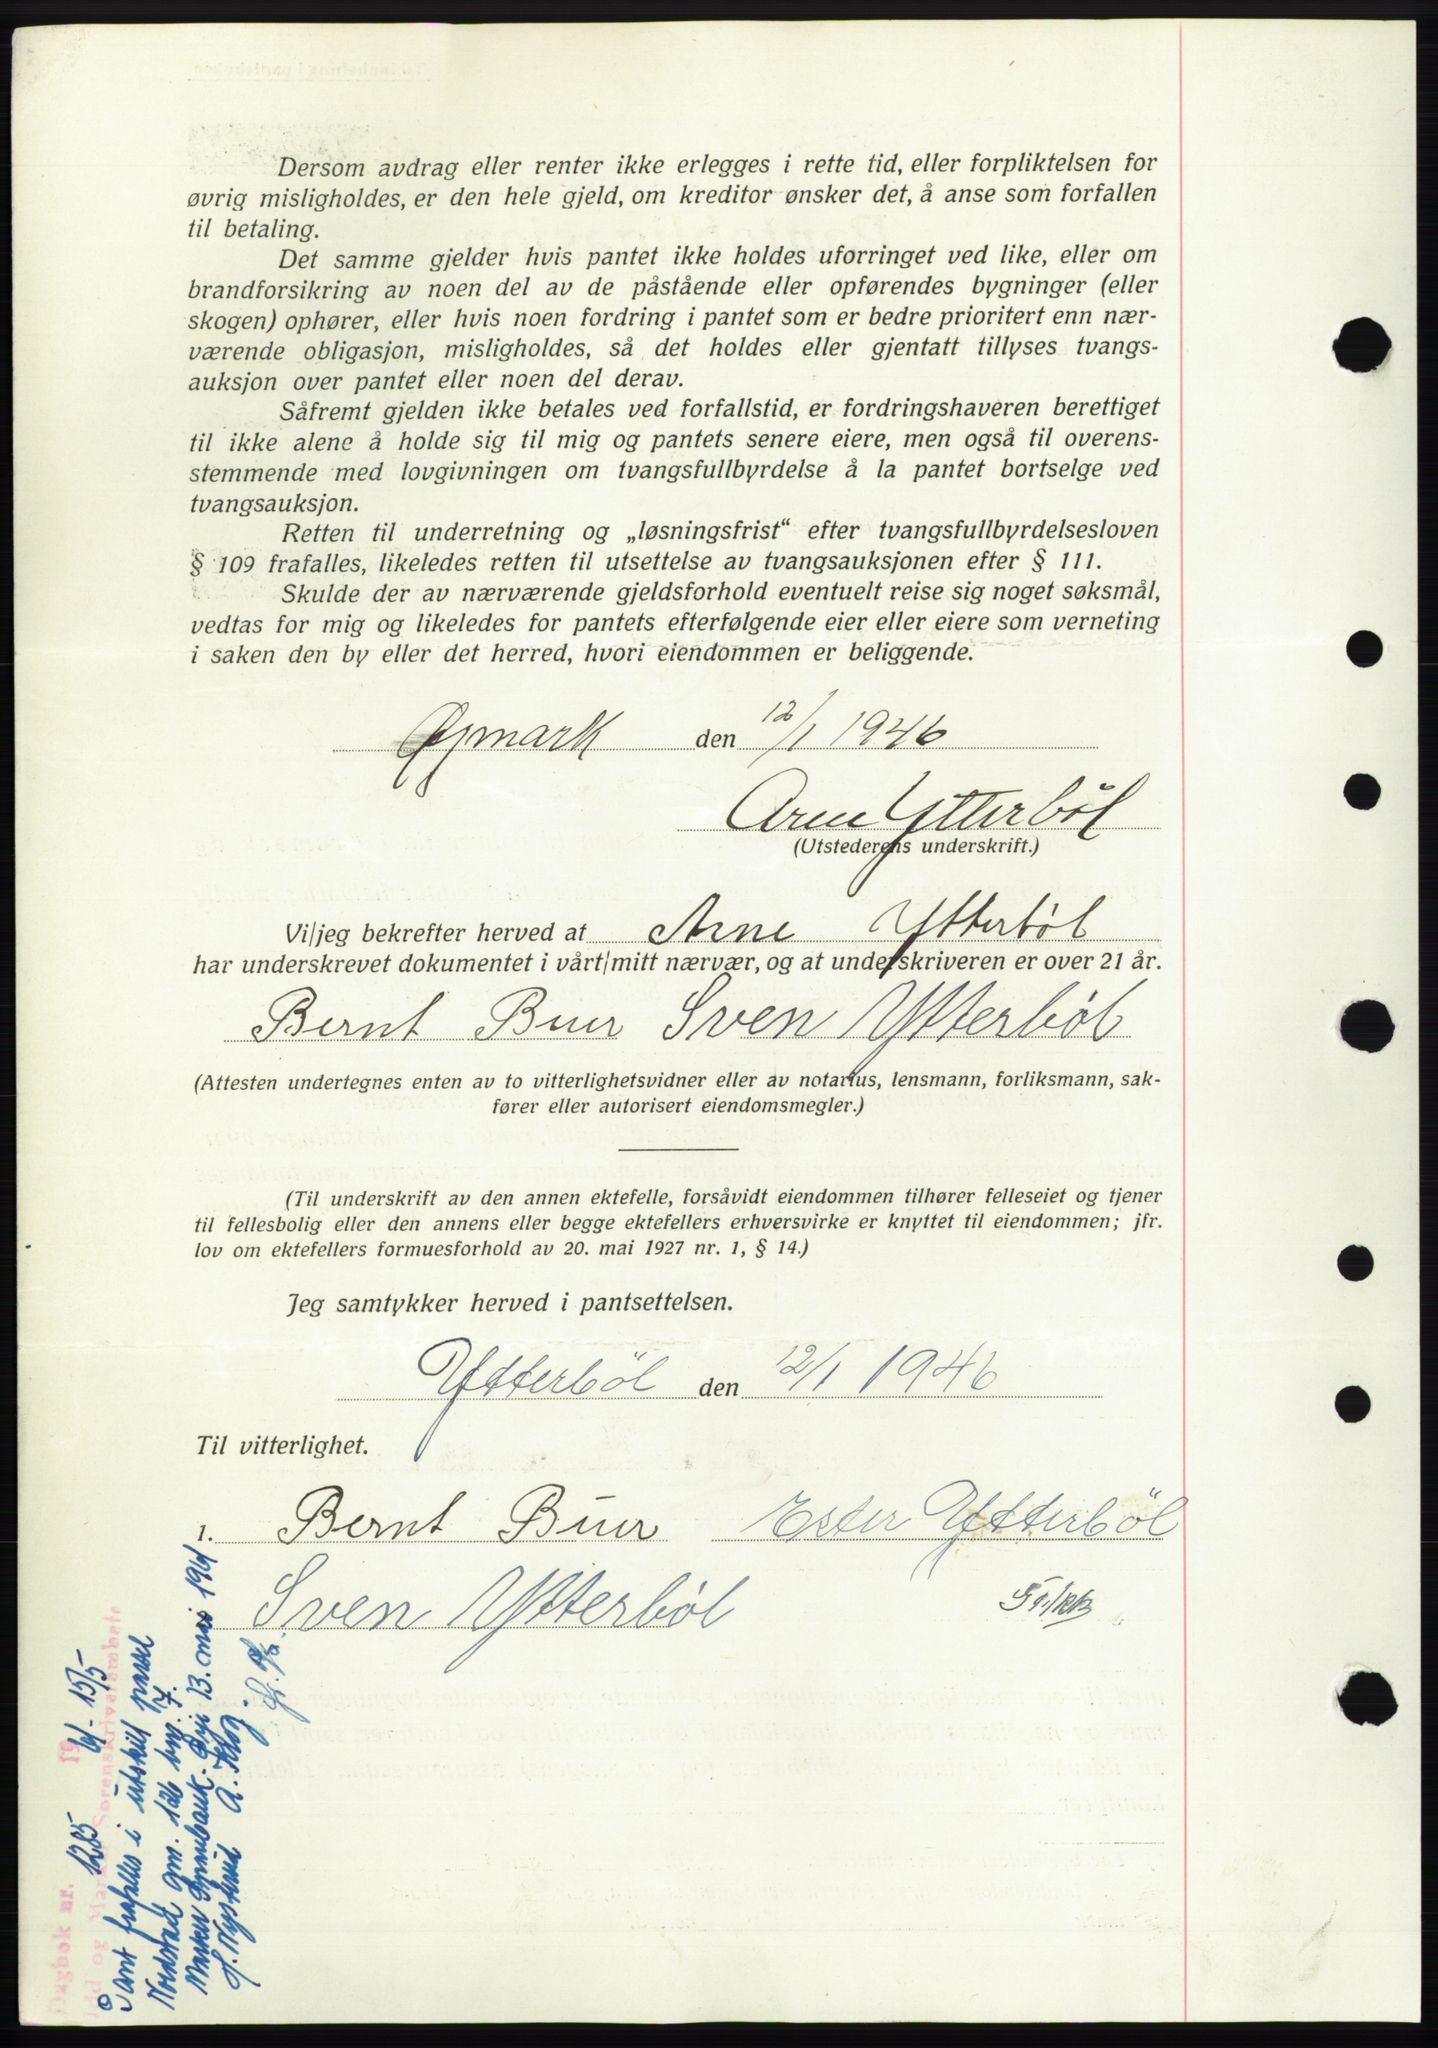 Dersom avdrag eller renter ikke erlegges i rette tid, eller forpliktelsen for
øvrig misligholdes, er den hele gjeld, om kreditor ønsker det, å anse som forfallen
til betaling.
Det samme gjelder hvis pantet ikke holdes uforringet ved like, eller om
brandforsikring av noen del av de påstående eller opførendes bygninger (eller
skogen) ophører, eller hvis noen fordring i pantet som er bedre prioritert enn nær-
værende obligasjon, misligholdes, så det holdes eller gjentatt tillyses tvangs-
auksjon over pantet eller noen del derav.
Såfremt gjelden ikke betales ved forfallstid, er fordringshaveren berettiget
til ikke alene å holde sig til mig og pantets senere eiere, men også til overens-
stemmende med lovgivningen om tvangsfullbyrdelse å la pantet bortselge ved
tvangsauksjon.
Retten til underretning og „løsningsfrist“ efter tvangsfullbyrdelsesloven
§ 109 frafalles, likeledes retten til utsettelse av tvangsauksjonen efter § 111.
Skulde der av nærværende gjeldsforhold eventuelt reise sig noget søksmål,
vedtas for mig og likeledes for pantets efterfølgende eier eller eiere som verneting
i saken den by eller det herred, hvori eiendommen er beliggende.
Øymark den 12/1 1946
Arne Ytterböl
(Utstederens underskrift.)
Vi/jeg bekrefter herved at Arne Ytterböl
har underskrevet dokumentet i vårt/mitt nærvær, og at underskriveren er over 21 år.
Bernt Buer Sven Ytterböl
(Attesten undertegnes enten av to vitterlighetsvidner eller av notarius, lensmann, forliksmann, sak-
fører eller autorisert eiendomsmegler.)
(Til underskrift av den annen ektefelle, forsåvidt eiendommen tilhører felleseiet og tjener
til fellesbolig eller den annens eller begge ektefellers erhversvirke er knyttet til eiendommen; jfr.
lov om ektefellers formuesforhold av 20. mai 1927 nr. 1, § 14.)
Jeg samtykker herved i pantsettelsen.
Ytterböl den 12/1 1946
Til vitterlighet.
1. Bernt Buer Ester Ytterböl
Sven Ytterböl
Dagbok nr. 1285 19 61 - 15/5
Idd og Marker Sorenskriverembete
Pant frafalles i utskilt parsel
Nordstad gnr. 126 bnr. 7.
Marker Sparebank. 13. mai 1961